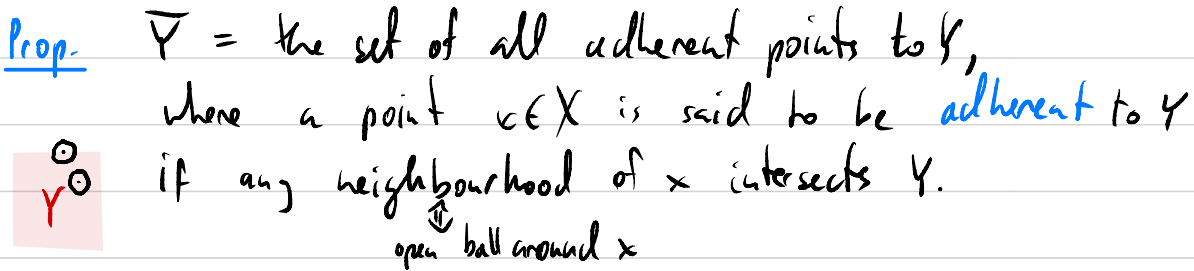 Prop. Ȳ = the set of all adherent points to Y,
where a point x ∈ X is said to be adherent to Y
if any neighbourhood of x intersects Y.
Y
⇕
open ball around x